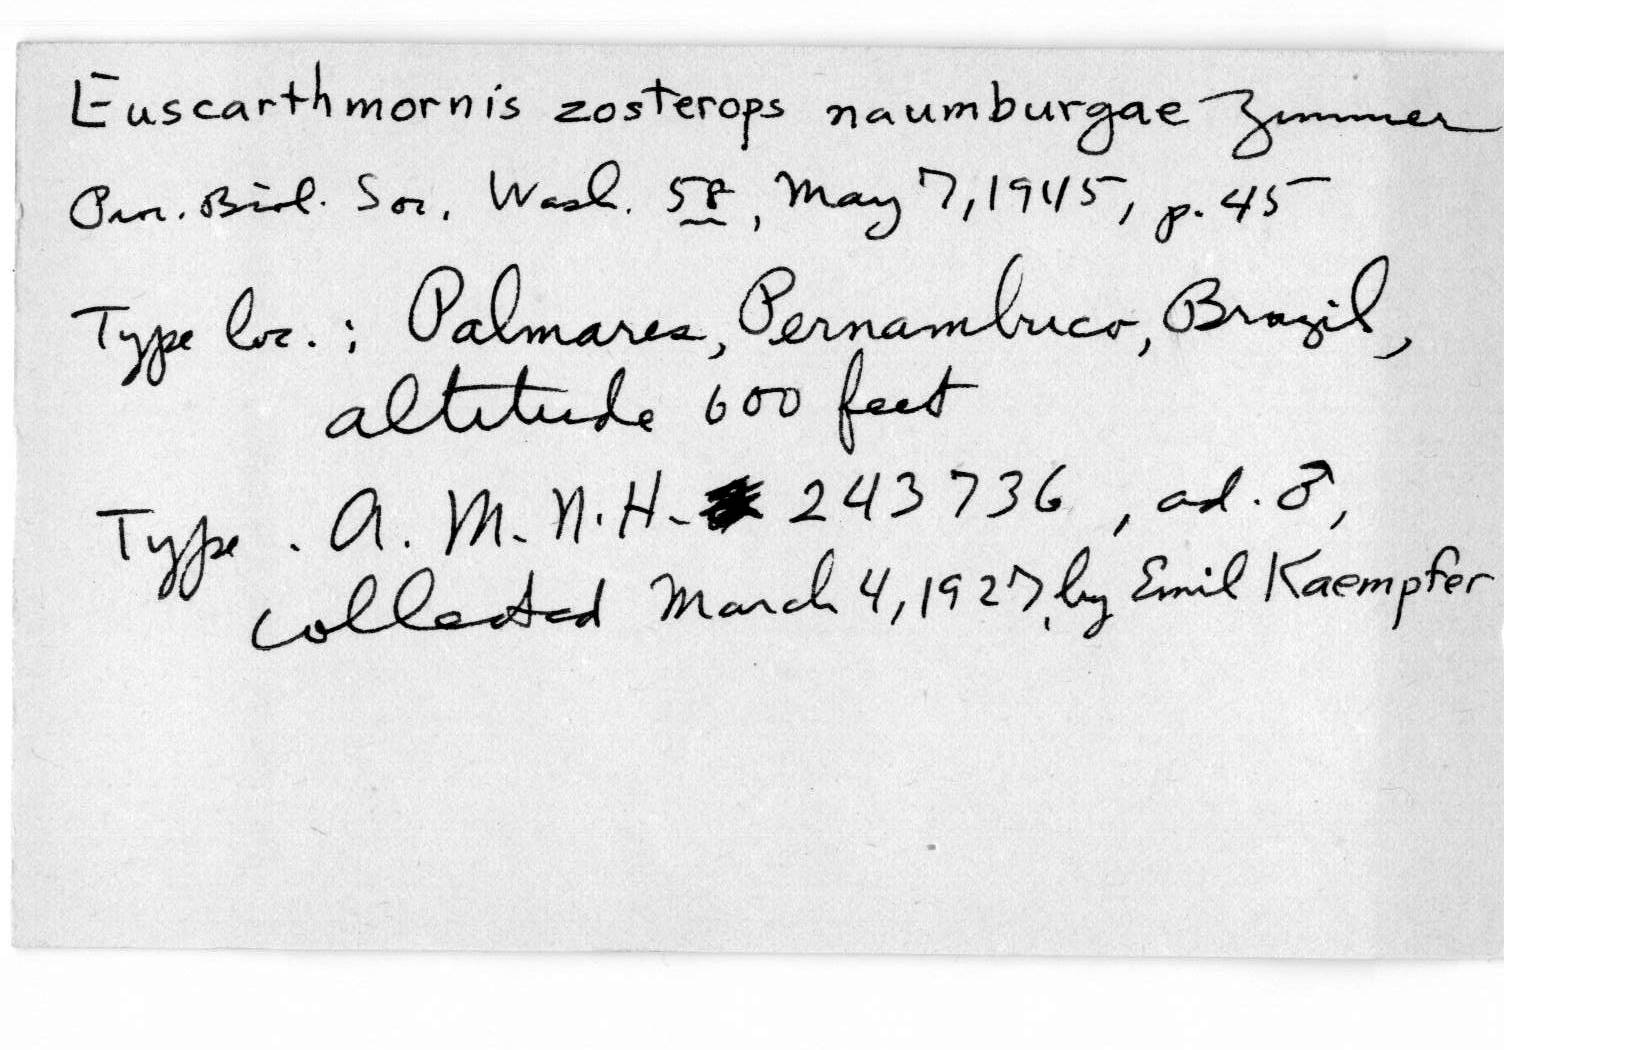 Euscarthmornis zosterops naumburgae Zimmer
Proc. Biol. Soc. Wash. 58, May 7, 1945, p. 45
Type loc.: Palmares, Pernambuco, Brazil,
altitude 600 feet
Type. A. M. N. H. 243736, ad. ♂,
collected March 4, 1927, by Emil Kaempfer